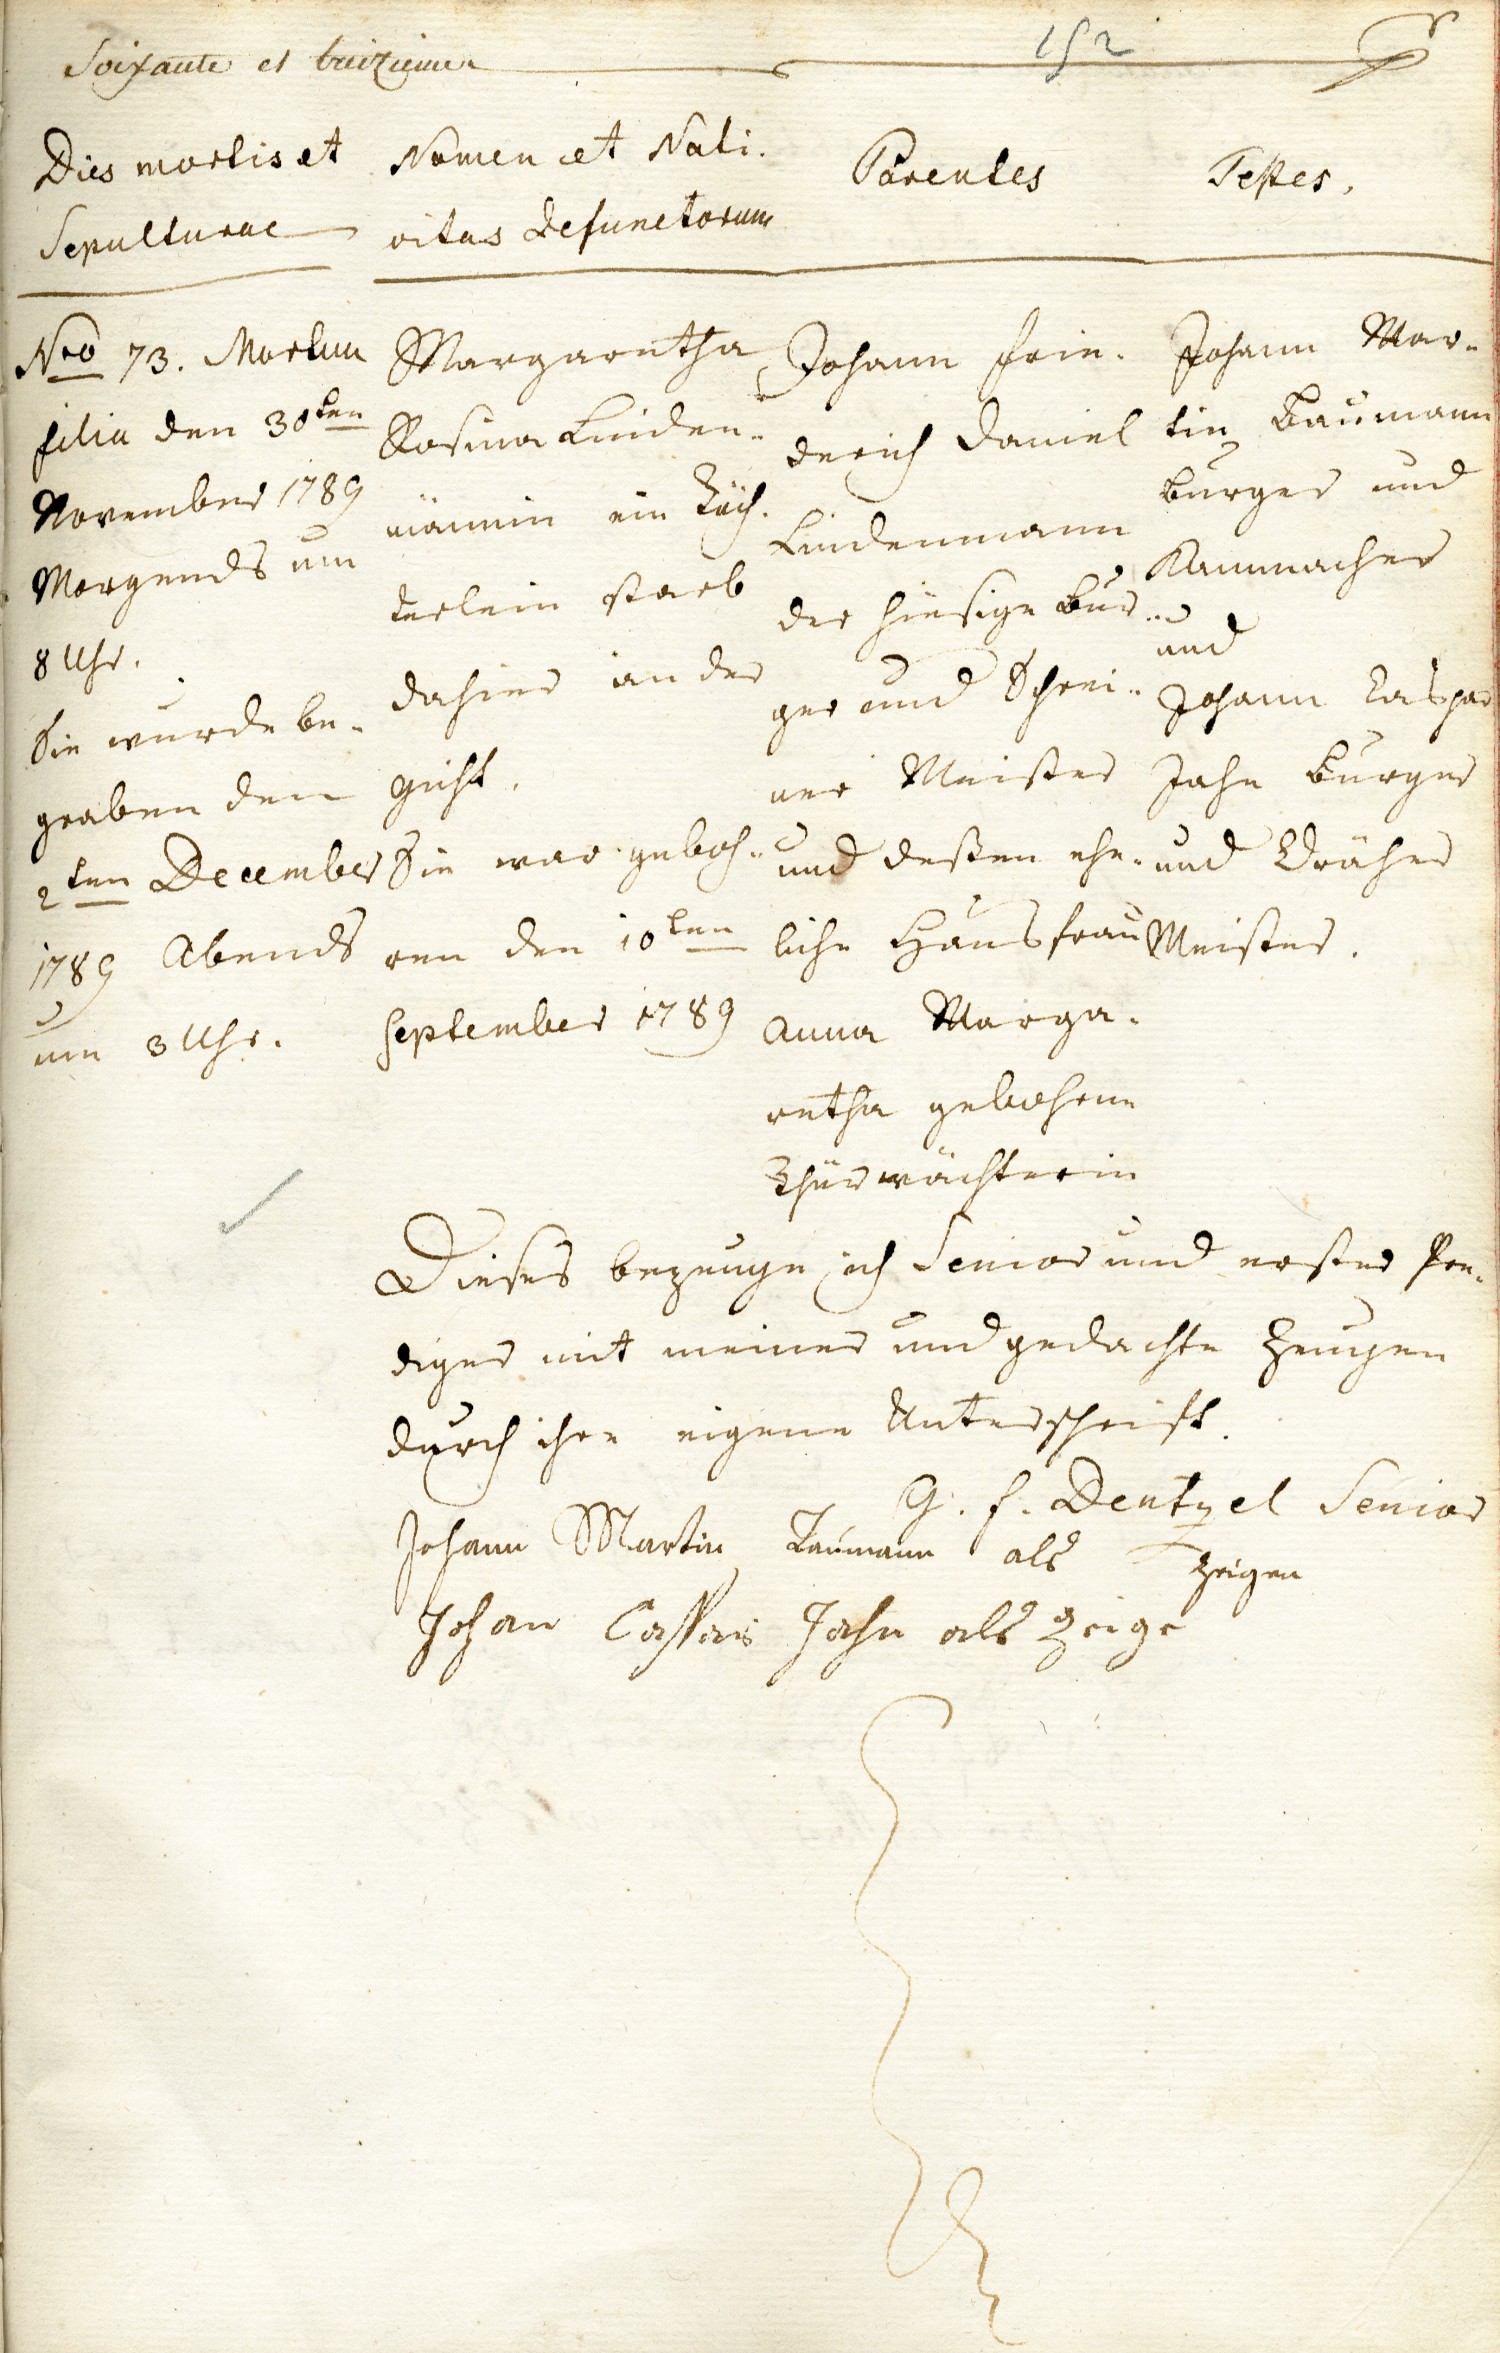 Soixante et treizieme
152
Dies mortis et
Sepulturae
Nomen et Nati-
vitas defunctorum
Parentes
Testes.
Nro 73. Mortua
filia den 30ten
November 1789
Morgends um
8 Uhr.
Sie wurde be-
graben den
2ten December
1789 Abends
um 3 Uhr.
Margaretha
Rosina Linden-
männin ein Töch-
terlein starb
dahier an der
Gicht.
Sie war geboh-
ren den 10ten
September 1789
Johann Frie-
derich Daniel
Lindenmann
der hiesige Bur-
ger und Schrei-
ner Meister
und deßen ehe-
liche Hausfrau
Anna Marga-
retha gebohrne
Thürwächterin
Johann Mar-
tin Baumann
burger und
Kammacher
und
Johann Caspar
Jahn burger
und Dräher
Meister.
Dieses bezeuge ich Senior und erster Pre-
diger mit meiner und gedachte Zeugen
durch ihre eigene Unterschrift.
G. F. Dentzel Senior
Johann Martin Baumann als Zeigen
Johan Casspar Jahn als Zeige